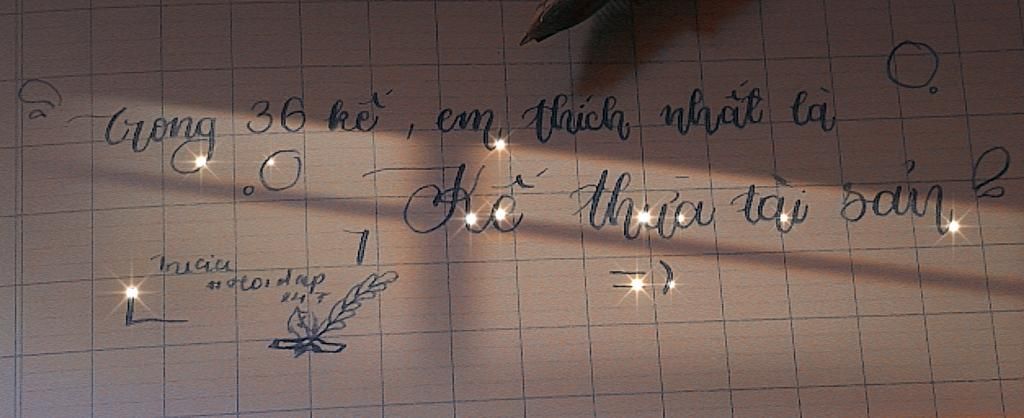 Trong 36 kế, em thích nhất là
Kế thừa tài sản
=)